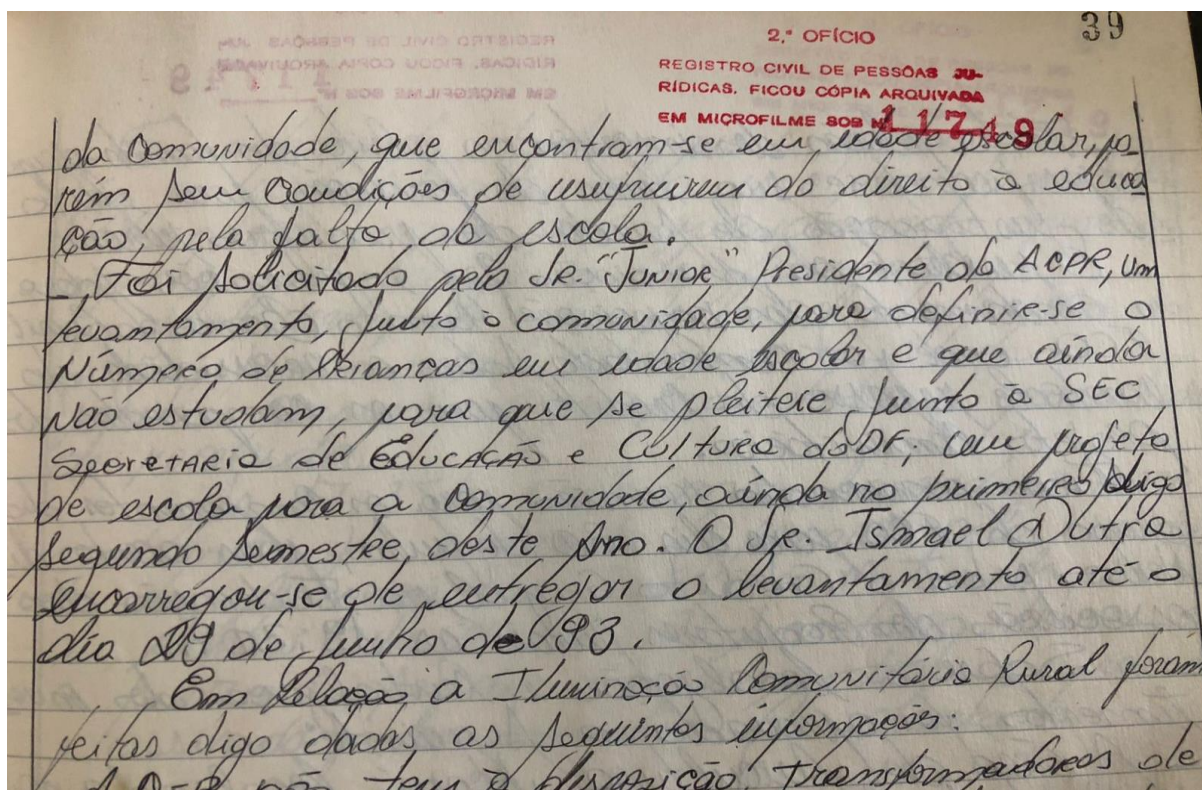 39
2.º OFÍCIO
REGISTRO CIVIL DE PESSÔAS JU-
RÍDICAS. FICOU CÓPIA ARQUIVADA
EM MICROFILME SOB Nº 11749
da Comunidade, que encontram-se em idade escolar, po_
rém sem condições de usufruirem do direito à educa
ção, pela falta da escola.
_ Foi solicitado pelo Sr. "Junior" Presidente da ACPR, um
levantamento, junto à comunidade, para definir-se o
Número de Crianças em idade escolar e que ainda
Não estudam, para que se pleiteie junto à SEC
Secretaria de Educação e Cultura do DF, um projeto
de escola para a Comunidade, ainda no primeiro, digo
segundo semestre, deste Ano. O Sr. Ismael Dutra
encarregou-se de entregar o levantamento até o
dia 29 de junho de 93.
Em Relação a Iluminação Comunitária Rural foram
feitas digo dadas, as seguintes informações:
não tem à disposição, transformadores de